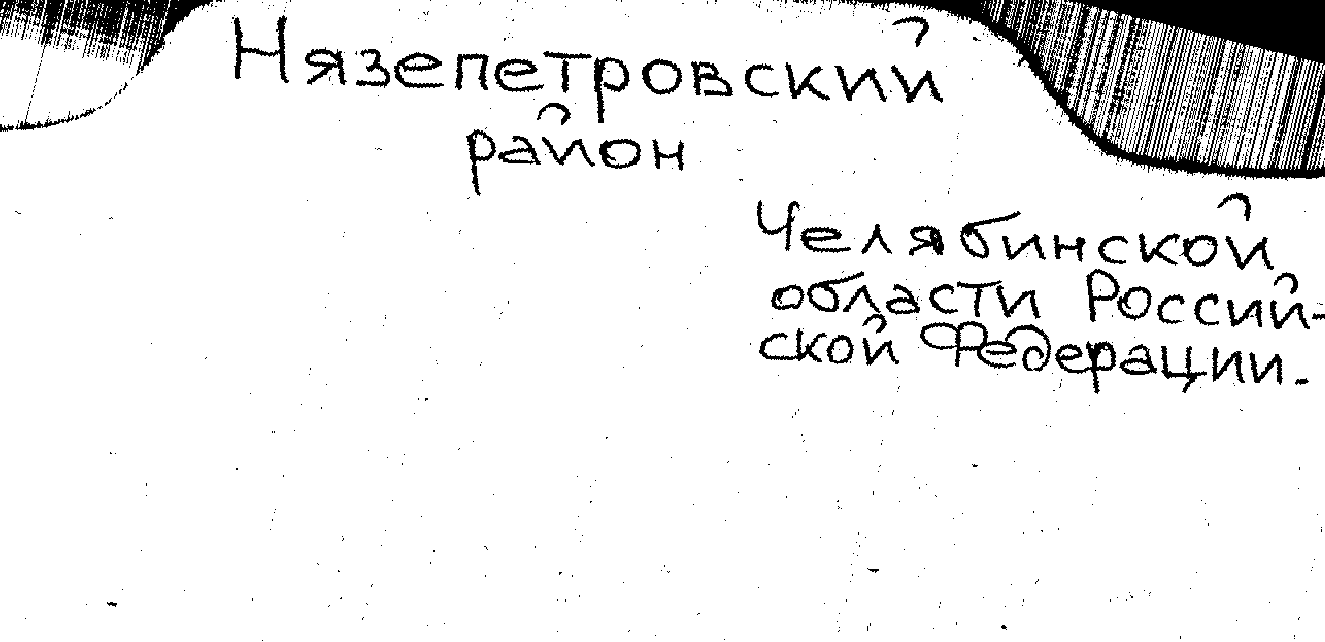 Нязепетровский
район
Челябинской
области Россий-
ской Федерации.